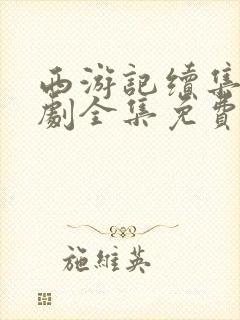 西游記續集
劇全集免費
施維英